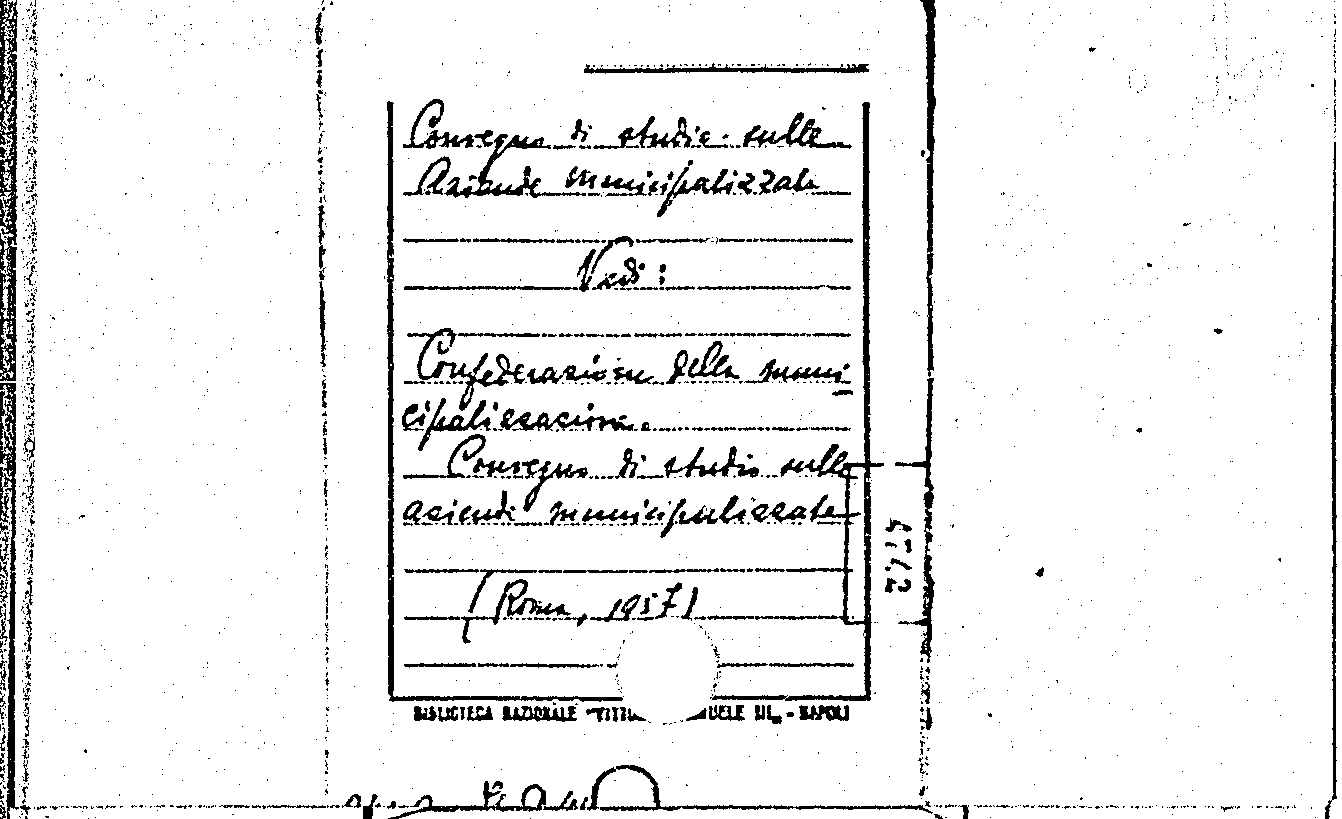 Convegno di studio sulle
Aziende municipalizzate
Vedi:
Confederazione della muni
cipalizzazione.
Convegno di studio sulle
aziende municipalizzate
(Roma, 1957)
BIBLIOTECA NAZIONALE "VITT UELE III„ - NAPOLI